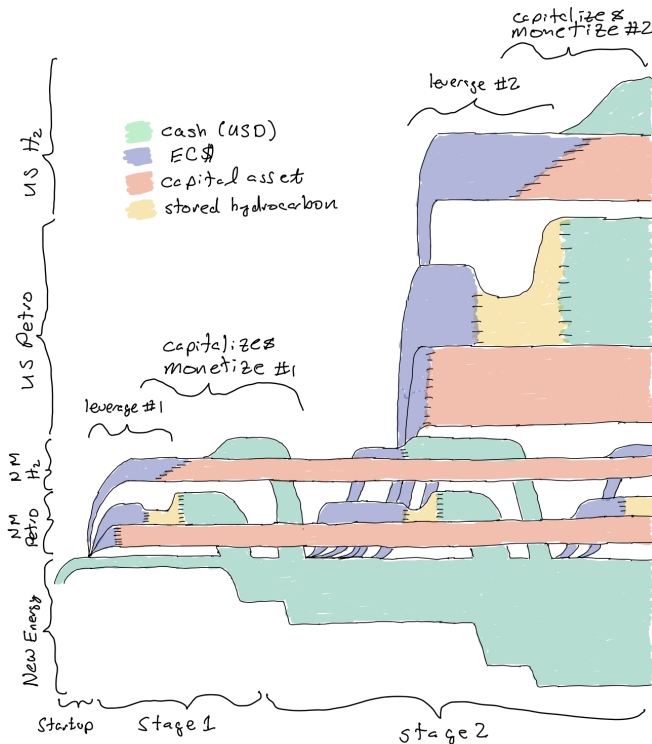 capitalize &
monetize #2
leverage #2
cash (USD)
EC$
capital asset
stored hydrocarbon
US H₂
US Petro
capitalize &
monetize #1
leverage #1
NM
H₂
NM
Petro
New Energy
Startup
Stage 1
Stage 2